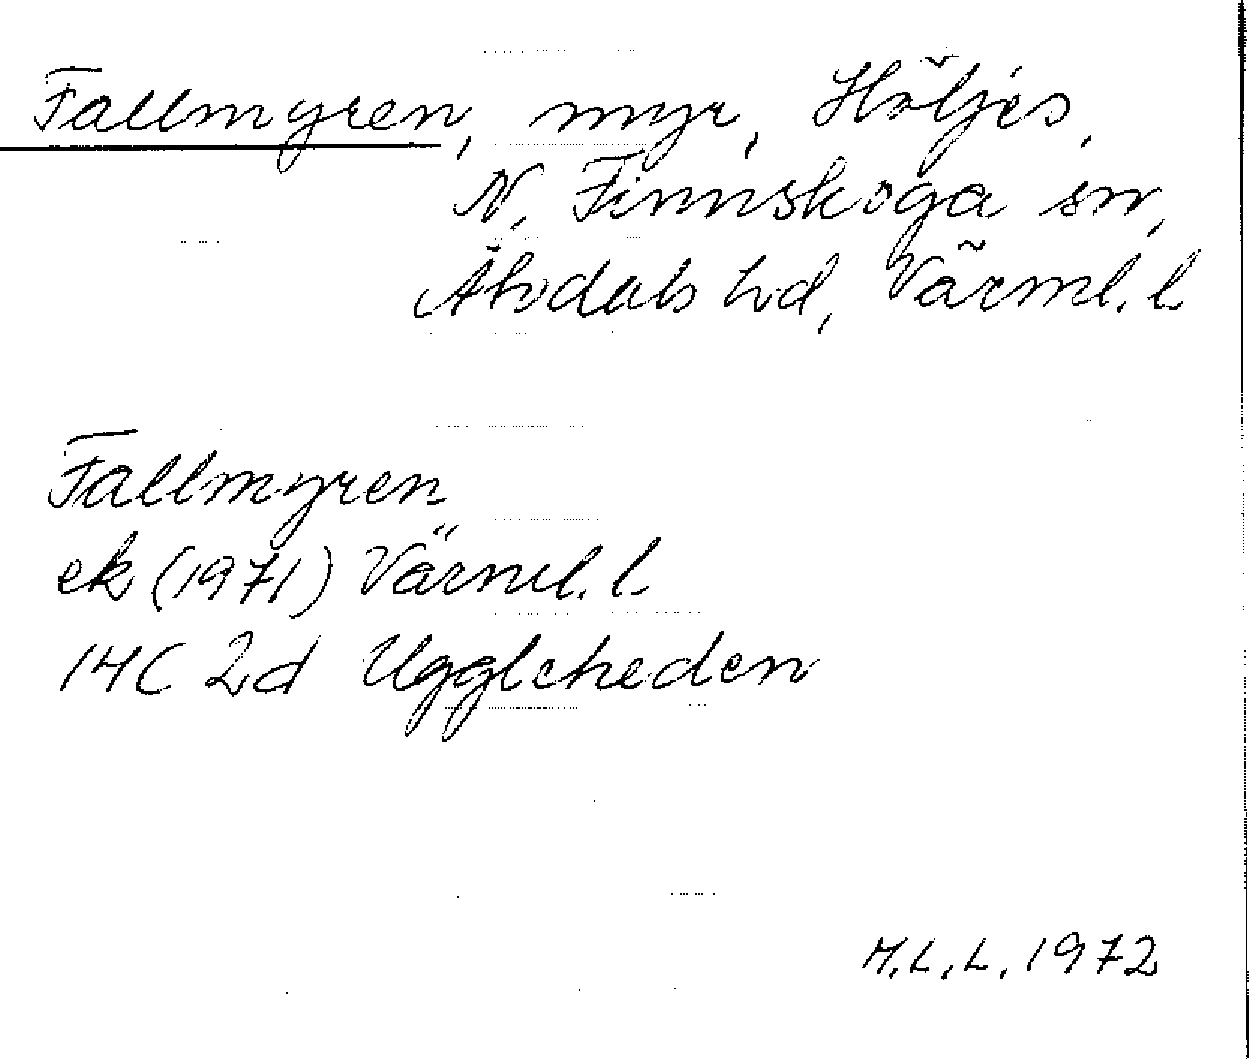 Fallmyren, myr, Höljes,
N. Finnskoga sn,
Älvdals hd, Värml. l.
Fallmyren
ek (1971) Värml. l.
14C 2d Uggleheden
M.L.L. 1972